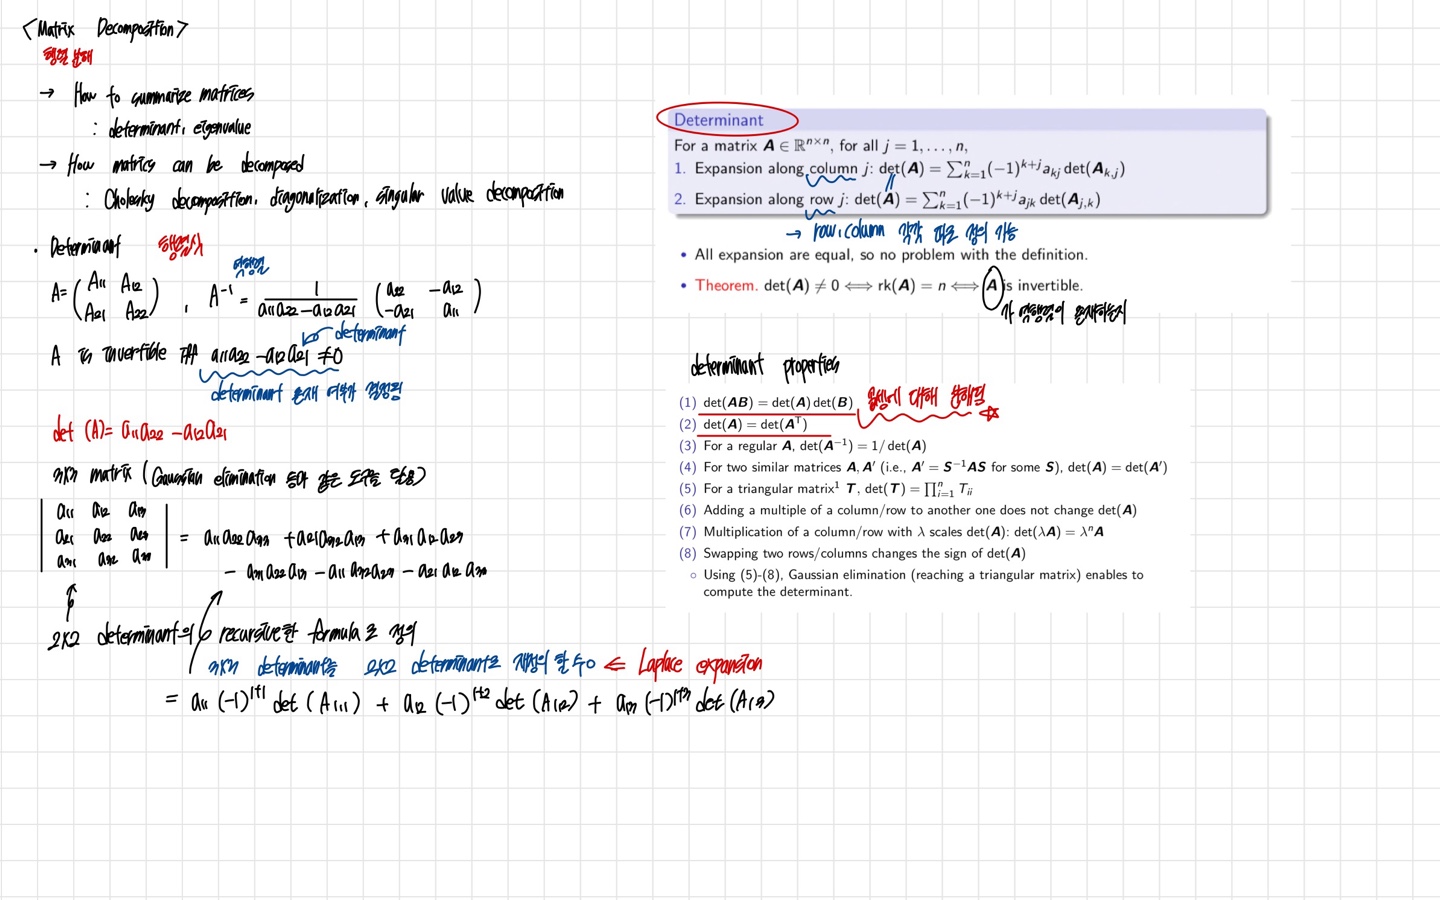 <Matrix Decomposition>
행렬 분해
→ How to summarize matrices
: determinant, eigenvalue
→ How matrics can be decomposed
: Cholesky decomposition, diagonalization, singular value decomposition
• Determinant 행렬식
역행렬
A= ( A11 A12 A21 A22 ) , A⁻¹ = 1 / (a11a22 − a12a21) ( a22 −a12 −a21 a11 )
determinant
A is invertible iff a11a22 − a12a21 ≠ 0
determinant 존재 여부가 결정됨
det (A) = a11a22 − a12a21
3X3 matrix ( Gaussian elimination 등과 같은 도구를 활용)
| a11 a12 a13
a21 a22 a23
a31 a32 a33 |
= a11a22a33 + a21a32a13 + a31a12a23
− a31a22a13 − a11a32a23 − a21a12a33
2X2 determinant의 recursive한 formula로 정의
3X3 determinant를 2X2 determinant로 재정의 할 수 ⇐ Laplace expansion
= a11 (−1)¹⁺¹ det (A1,1) + a12 (−1)¹⁺² det (A1,2) + a13 (−1)¹⁺³ det (A1,3)
Determinant
For a matrix A ∈ ℝⁿˣⁿ, for all j = 1, . . . , n,
1. Expansion along column j: det(A) = ∑ⁿₖ₌₁(−1)ᵏ⁺ʲ aₖⱼ det(Aₖ,ⱼ)
2. Expansion along row j: det(A) = ∑ⁿₖ₌₁(−1)ᵏ⁺ʲ aⱼₖ det(Aⱼ,ₖ)
→ row, column 각각 따로 정의 가능
• All expansion are equal, so no problem with the definition.
• Theorem. det(A) ≠ 0 ⟺ rk(A) = n ⟺ A is invertible.
가 역행렬이 존재하는지
determinant properties
(1) det(AB) = det(A) det(B) 곱셈에 대해 분해됨 ☆
(2) det(A) = det(Aᵀ)
(3) For a regular A, det(A⁻¹) = 1/ det(A)
(4) For two similar matrices A, A′ (i.e., A′ = S⁻¹AS for some S), det(A) = det(A′)
(5) For a triangular matrix¹ T, det(T) = ∏ⁿᵢ₌₁ Tᵢᵢ
(6) Adding a multiple of a column/row to another one does not change det(A)
(7) Multiplication of a column/row with λ scales det(A): det(λA) = λⁿA
(8) Swapping two rows/columns changes the sign of det(A)
◦ Using (5)-(8), Gaussian elimination (reaching a triangular matrix) enables to
compute the determinant.